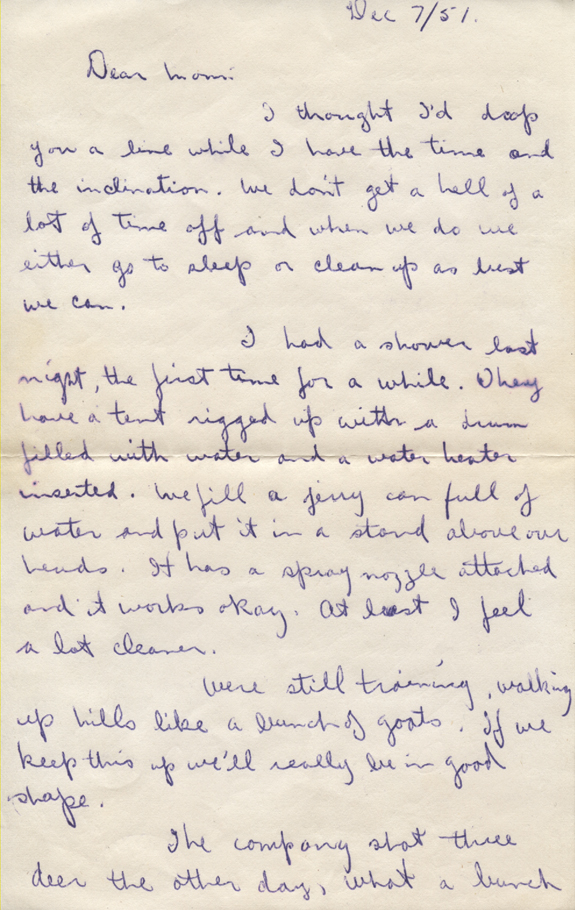 Dec 7/51.
Dear Mom:
I thought I'd drop
you a line while I have the time and
the inclination. We don't get a hell of a
lot of time off and when we do we
either go to sleep or clean up as best
we can.
I had a shower last
night, the first time for a while. They
have a tent rigged up with a drum
filled with water and a water heater
inserted. We fill a jerry can full of
water and put it in a stand above our
heads. It has a spray nozzle attached
and it works okay. At least I feel
a lot cleaner.
We're still training, walking
up hills like a bunch of goats. If we
keep this up we'll really be in good
shape.
The company shot three
deer the other day, what a bunch